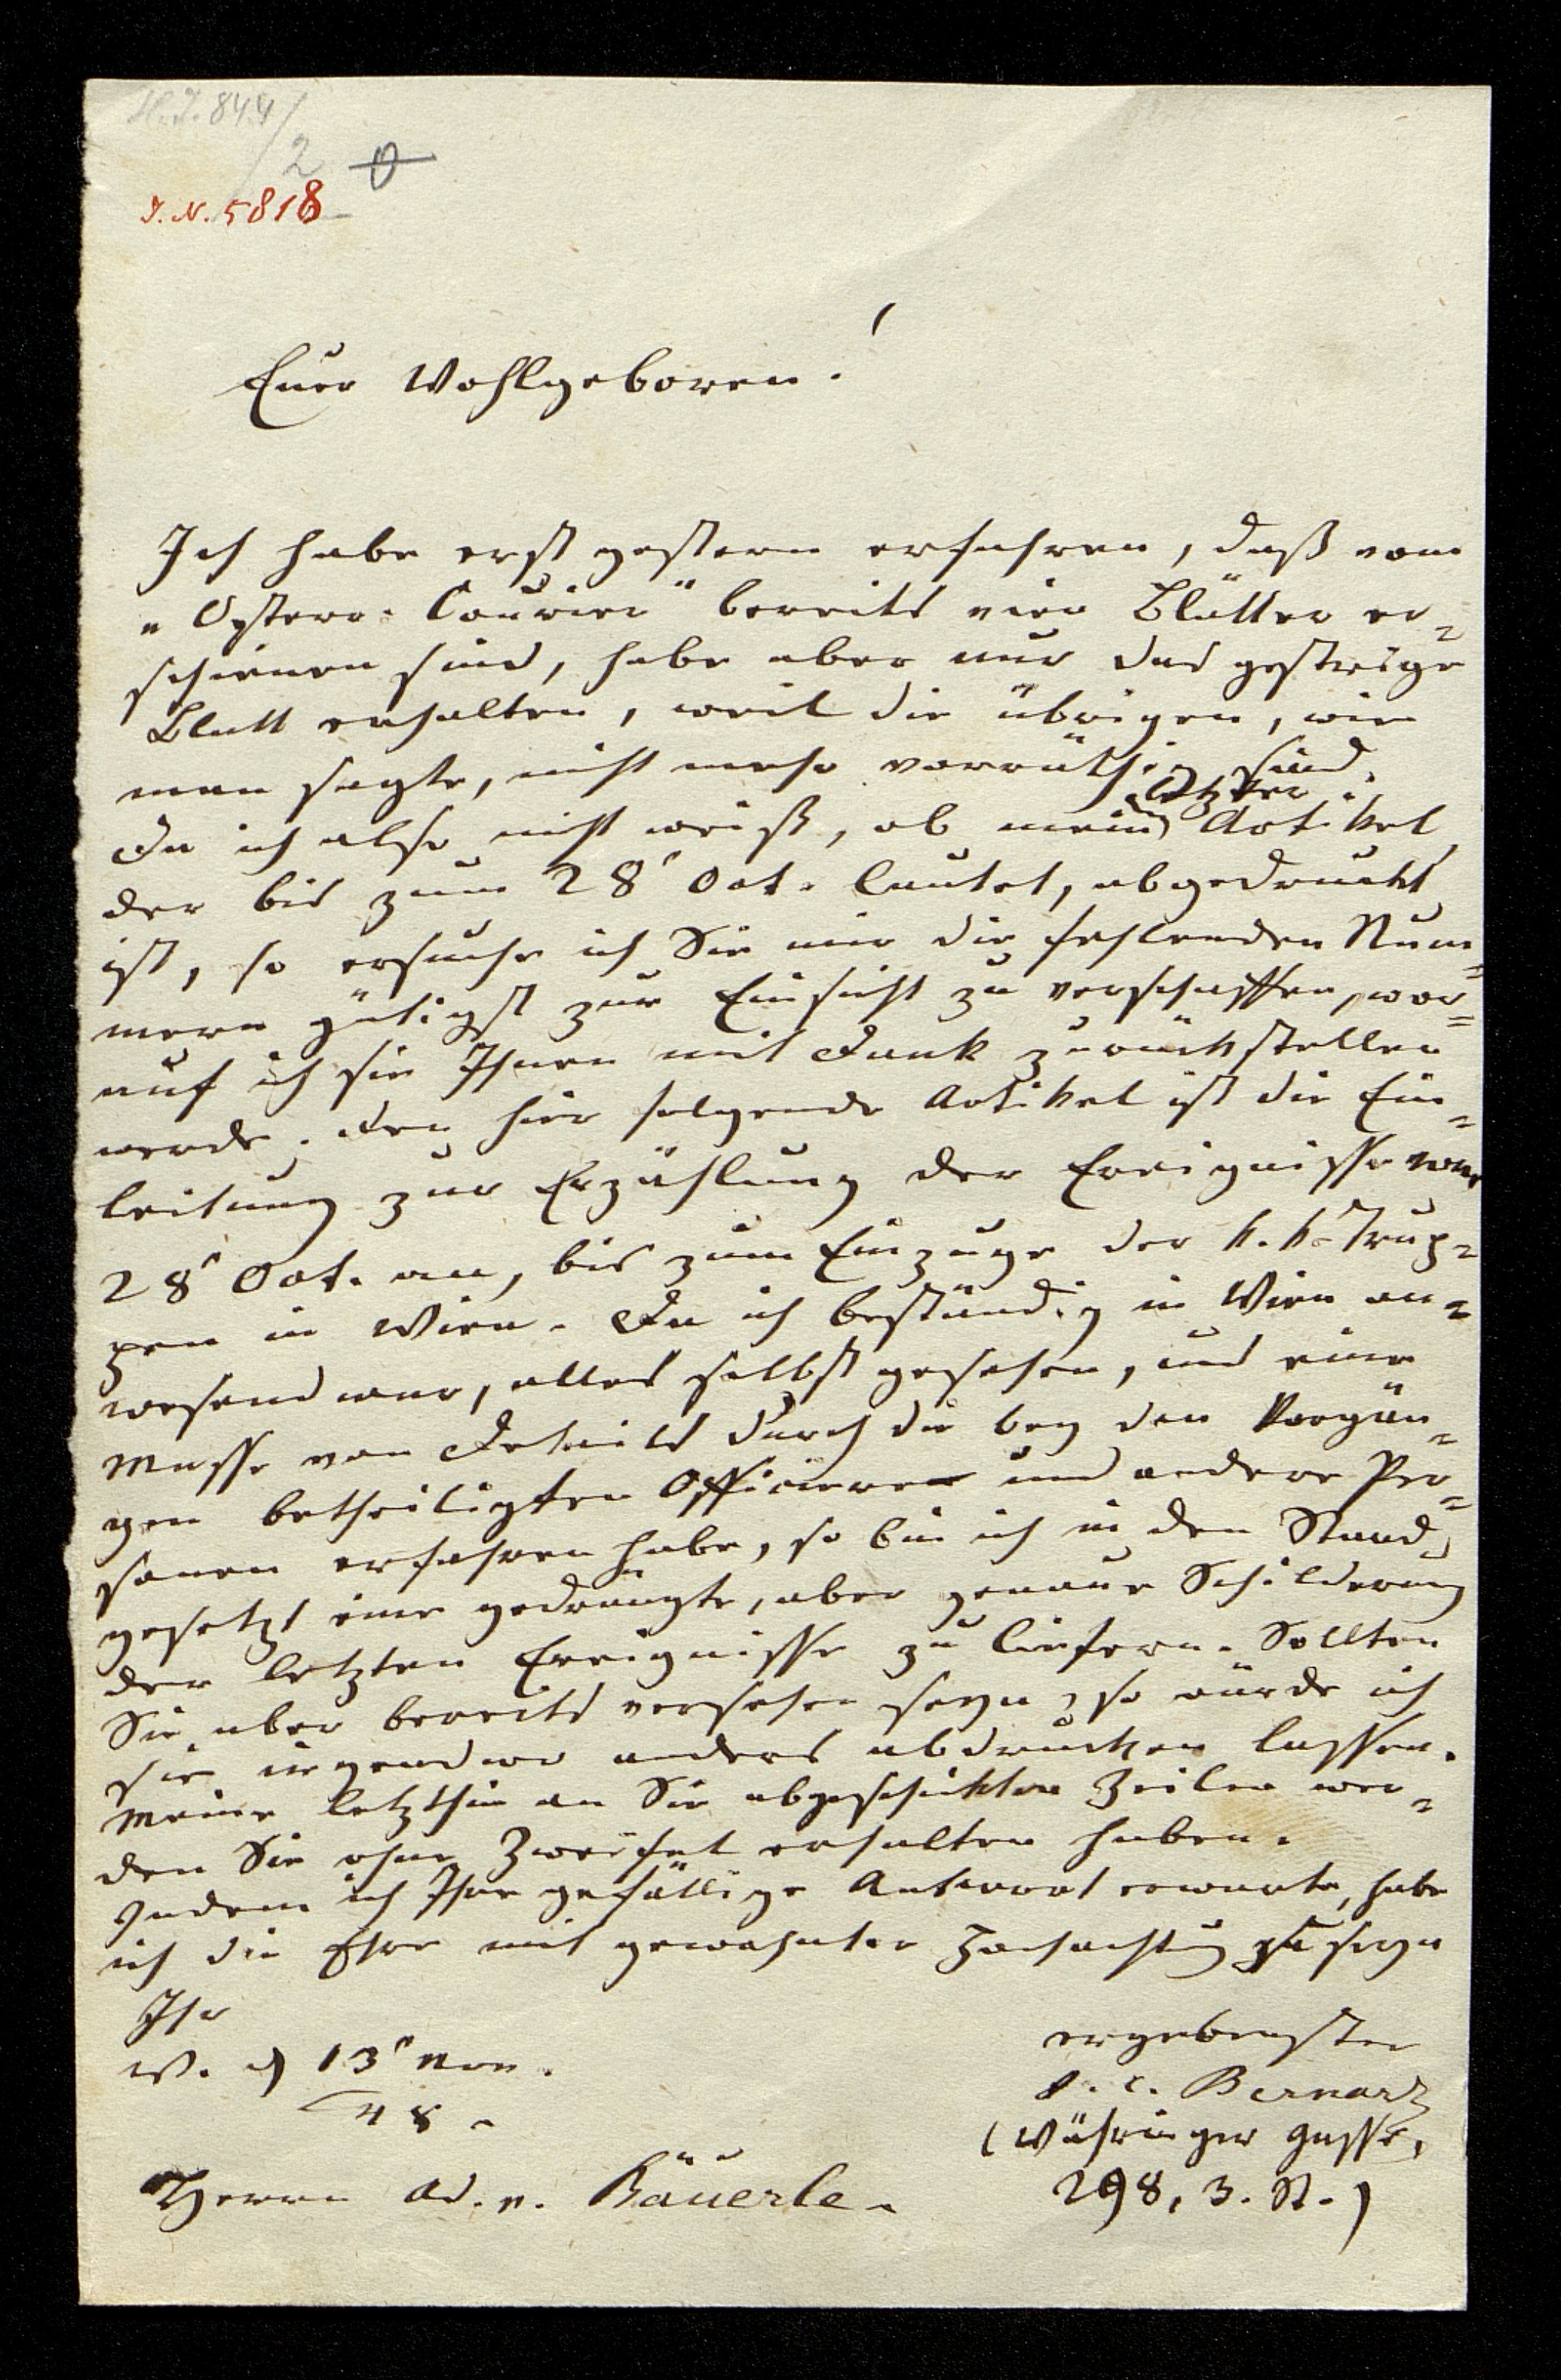 H.I. 844/
2
I.N. 5818
Euer Wohlgeboren!
Ich habe erst gestern erfahren, daß vom
„Oesterr. Courier" bereits vier Blätter er=
schienen sind, habe aber nur das gestrige
Blatt erhalten, weil die übrigen, wie
man sagte, nicht mehr vorräthig sind.
letzter
Da ich also nicht weiß, ob mein Artikel
der bis zum 28t Oct. lautet, abgedruckt
ist, so ersuche ich Sie mir die fehlenden Num=
mern gütigst zur Einsicht zu verschaffen, wor=
auf ich sie Ihnen mit Dank zurückstellen
werde. Der hier folgende Artikel ist die Ein=
leitung zur Erzählung der Ereignisse vom
28t Oct. an, bis zum Einzuge der k.k. Trup=
pen in Wien. Da ich beständig in Wien an=
wesend war, alles selbst gesehen, und eine
Masse von Details durch die bey den Vorgän=
gen betheiligten Officiere und andere Per=
sonen erfahren habe, so bin ich in den Stand
gesetzt eine gedrängte, aber genaue Schilderung
der letzten Ereignisse zu liefern. Sollten
Sie aber bereits versehen seyn, so würde ich
sie irgendwo anders abdrucken lassen.
Meine letzthin an Sie abgeschickten Zeilen wer=
den Sie ohne Zweifel erhalten haben.
Indem ich Ihre gefällige Antwort erwarte, habe
ich die Ehre mit gewohnter Hochachtung zu seyn
Ihr
ergebenster
W. d 13t Nov.
48.
J. C. Bernard
(Währinger Gasse,
298, 3. St.)
Herrn Ad. v. Bäuerle.